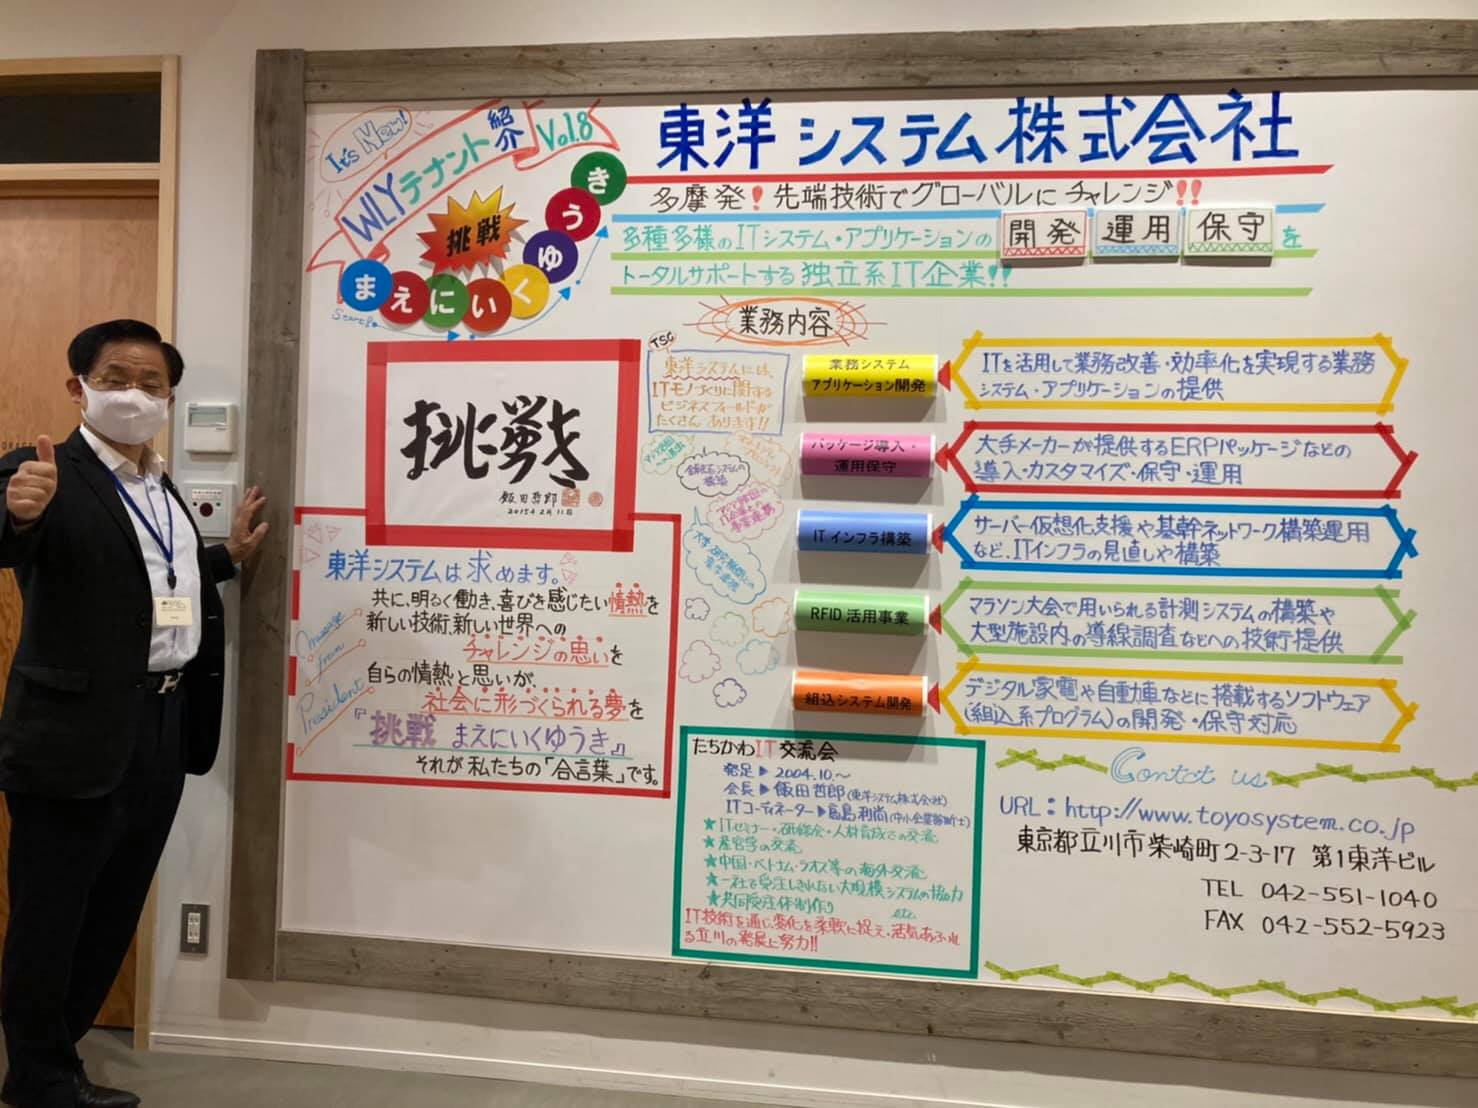 It's New!
WLYテナント紹介 Vol.8
挑戦
まえにいくゆうき
東洋システム株式会社
多摩発!先端技術でグローバルにチャレンジ!!
多種多様のITシステム・アプリケーションの 開発 運用 保守 を
トータルサポートする独立系IT企業!!
業務内容
挑戦
飯田哲郎
2015年2月11日
東洋システムは求めます。
共に、明るく働き、喜びを感じたい情熱を
新しい技術、新しい世界への
チャレンジの思いを
自らの情熱と思いが、
社会に形づくられる夢を
『挑戦 まえにいくゆうき』
それが私たちの「合言葉」です。
message
from
President
TSC
東洋システムには、
ITモノづくりに関する
ビジネスフィールドが
たくさんあります!!
業務システム
アプリケーション開発
ITを活用して業務改善・効率化を実現する業務
システム・アプリケーションの提供
パッケージ導入・
運用保守
大手メーカーが提供するERPパッケージなどの
導入・カスタマイズ・保守・運用
ITインフラ構築
サーバー仮想化支援や基幹ネットワーク構築運用
など、ITインフラの見直しや構築
RFID活用事業
マラソン大会で用いられる計測システムの構築や
大型施設内の導線調査などへの技術提供
組込システム開発
デジタル家電や自動車などに搭載するソフトウェア
(組込系プログラム)の開発・保守対応
たちかわIT交流会
発足▶2004.10.~
会長▶飯田哲郎(東洋システム株式会社)
ITコーディネーター▶島利尚(中小企業診断士)
★ITセミナー・研修会・人材育成での交流
★産官学の交流
★中国・ベトナム・ラオス等の海外交流
★一社で受注しきれない大規模システムの協力
★共同受注体制作り etc.
IT技術を通じ変化を柔軟に捉え、活気あふれ
る立川の発展に努力!!
Contact us
URL:http://www.toyosystem.co.jp
東京都立川市柴崎町2-3-17 第1東洋ビル
TEL 042-551-1040
FAX 042-552-5923